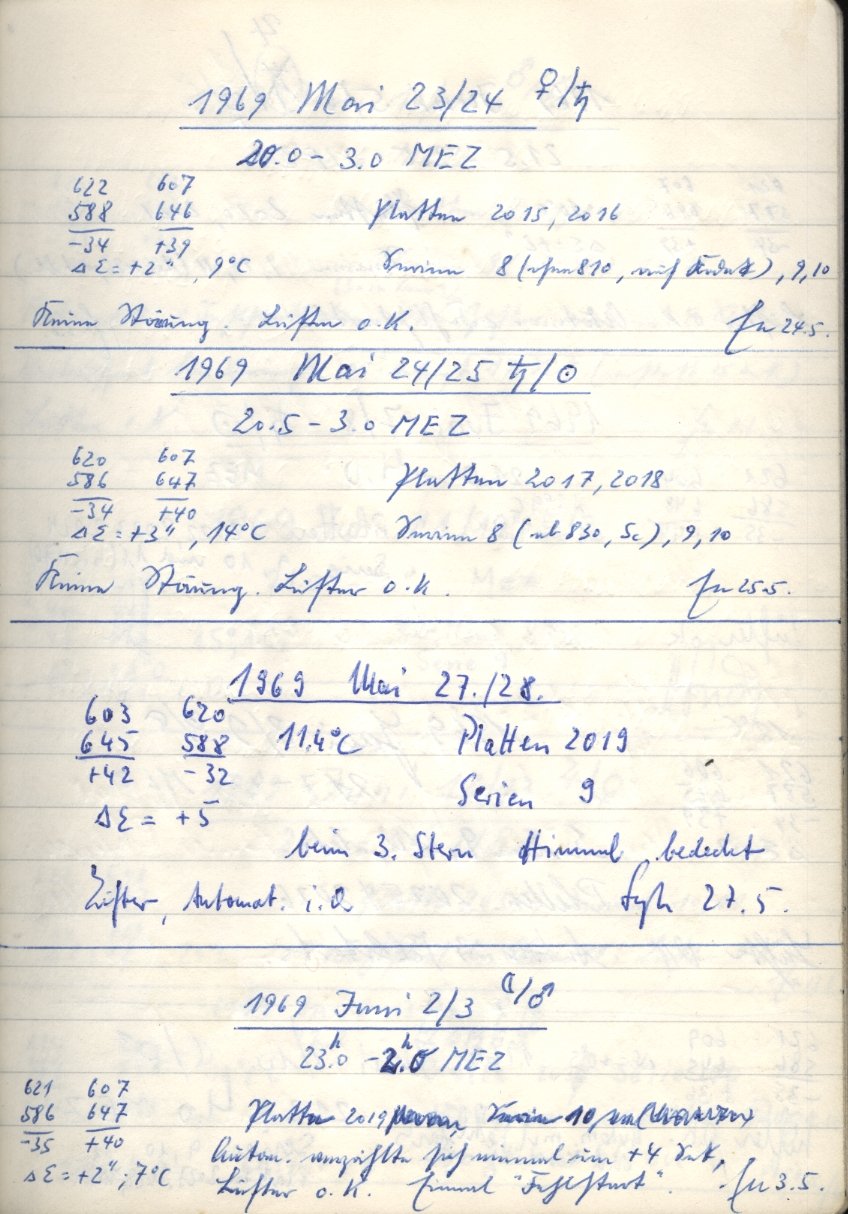 1969 Mai 23/24 ♀/♄
20.0 - 3.0 MEZ
622 607
588 646
-34 +39
Platten 2015, 2016
Δε = +2", 9°C
Serien 8 (ohne 810, auf), 9, 10
Keine Störung. Lüfter o.K. 24.5.
1969 Mai 24/25 ♄/☉
20.5 - 3.0 MEZ
620 607
586 647
-34 +40
Platten 2017, 2018
Δε = +3", 14°C
Serien 8 (ab 830, Sc), 9, 10
Keine Störung. Lüfter o.K. 25.5.
1969 Mai 27./28.
603 620
645 588
+42 -32
11.4°C
Platten 2019
Serien 9
Δε = +5
beim 3. Stern Himmel bedeckt
Lüfter, Automat. i.O. 27.5.
1969 Juni 2/3 ☾/♂
23ʰ.0 - 2ʰ. MEZ
621 607
586 647
-35 +40
Platte 2019 Serie 10
Autom. verzählte sich einmal um +4 Sek,
Δε = +2"; 7°C
Lüfter o.K. Einmal "Fehlstart". 3.5.